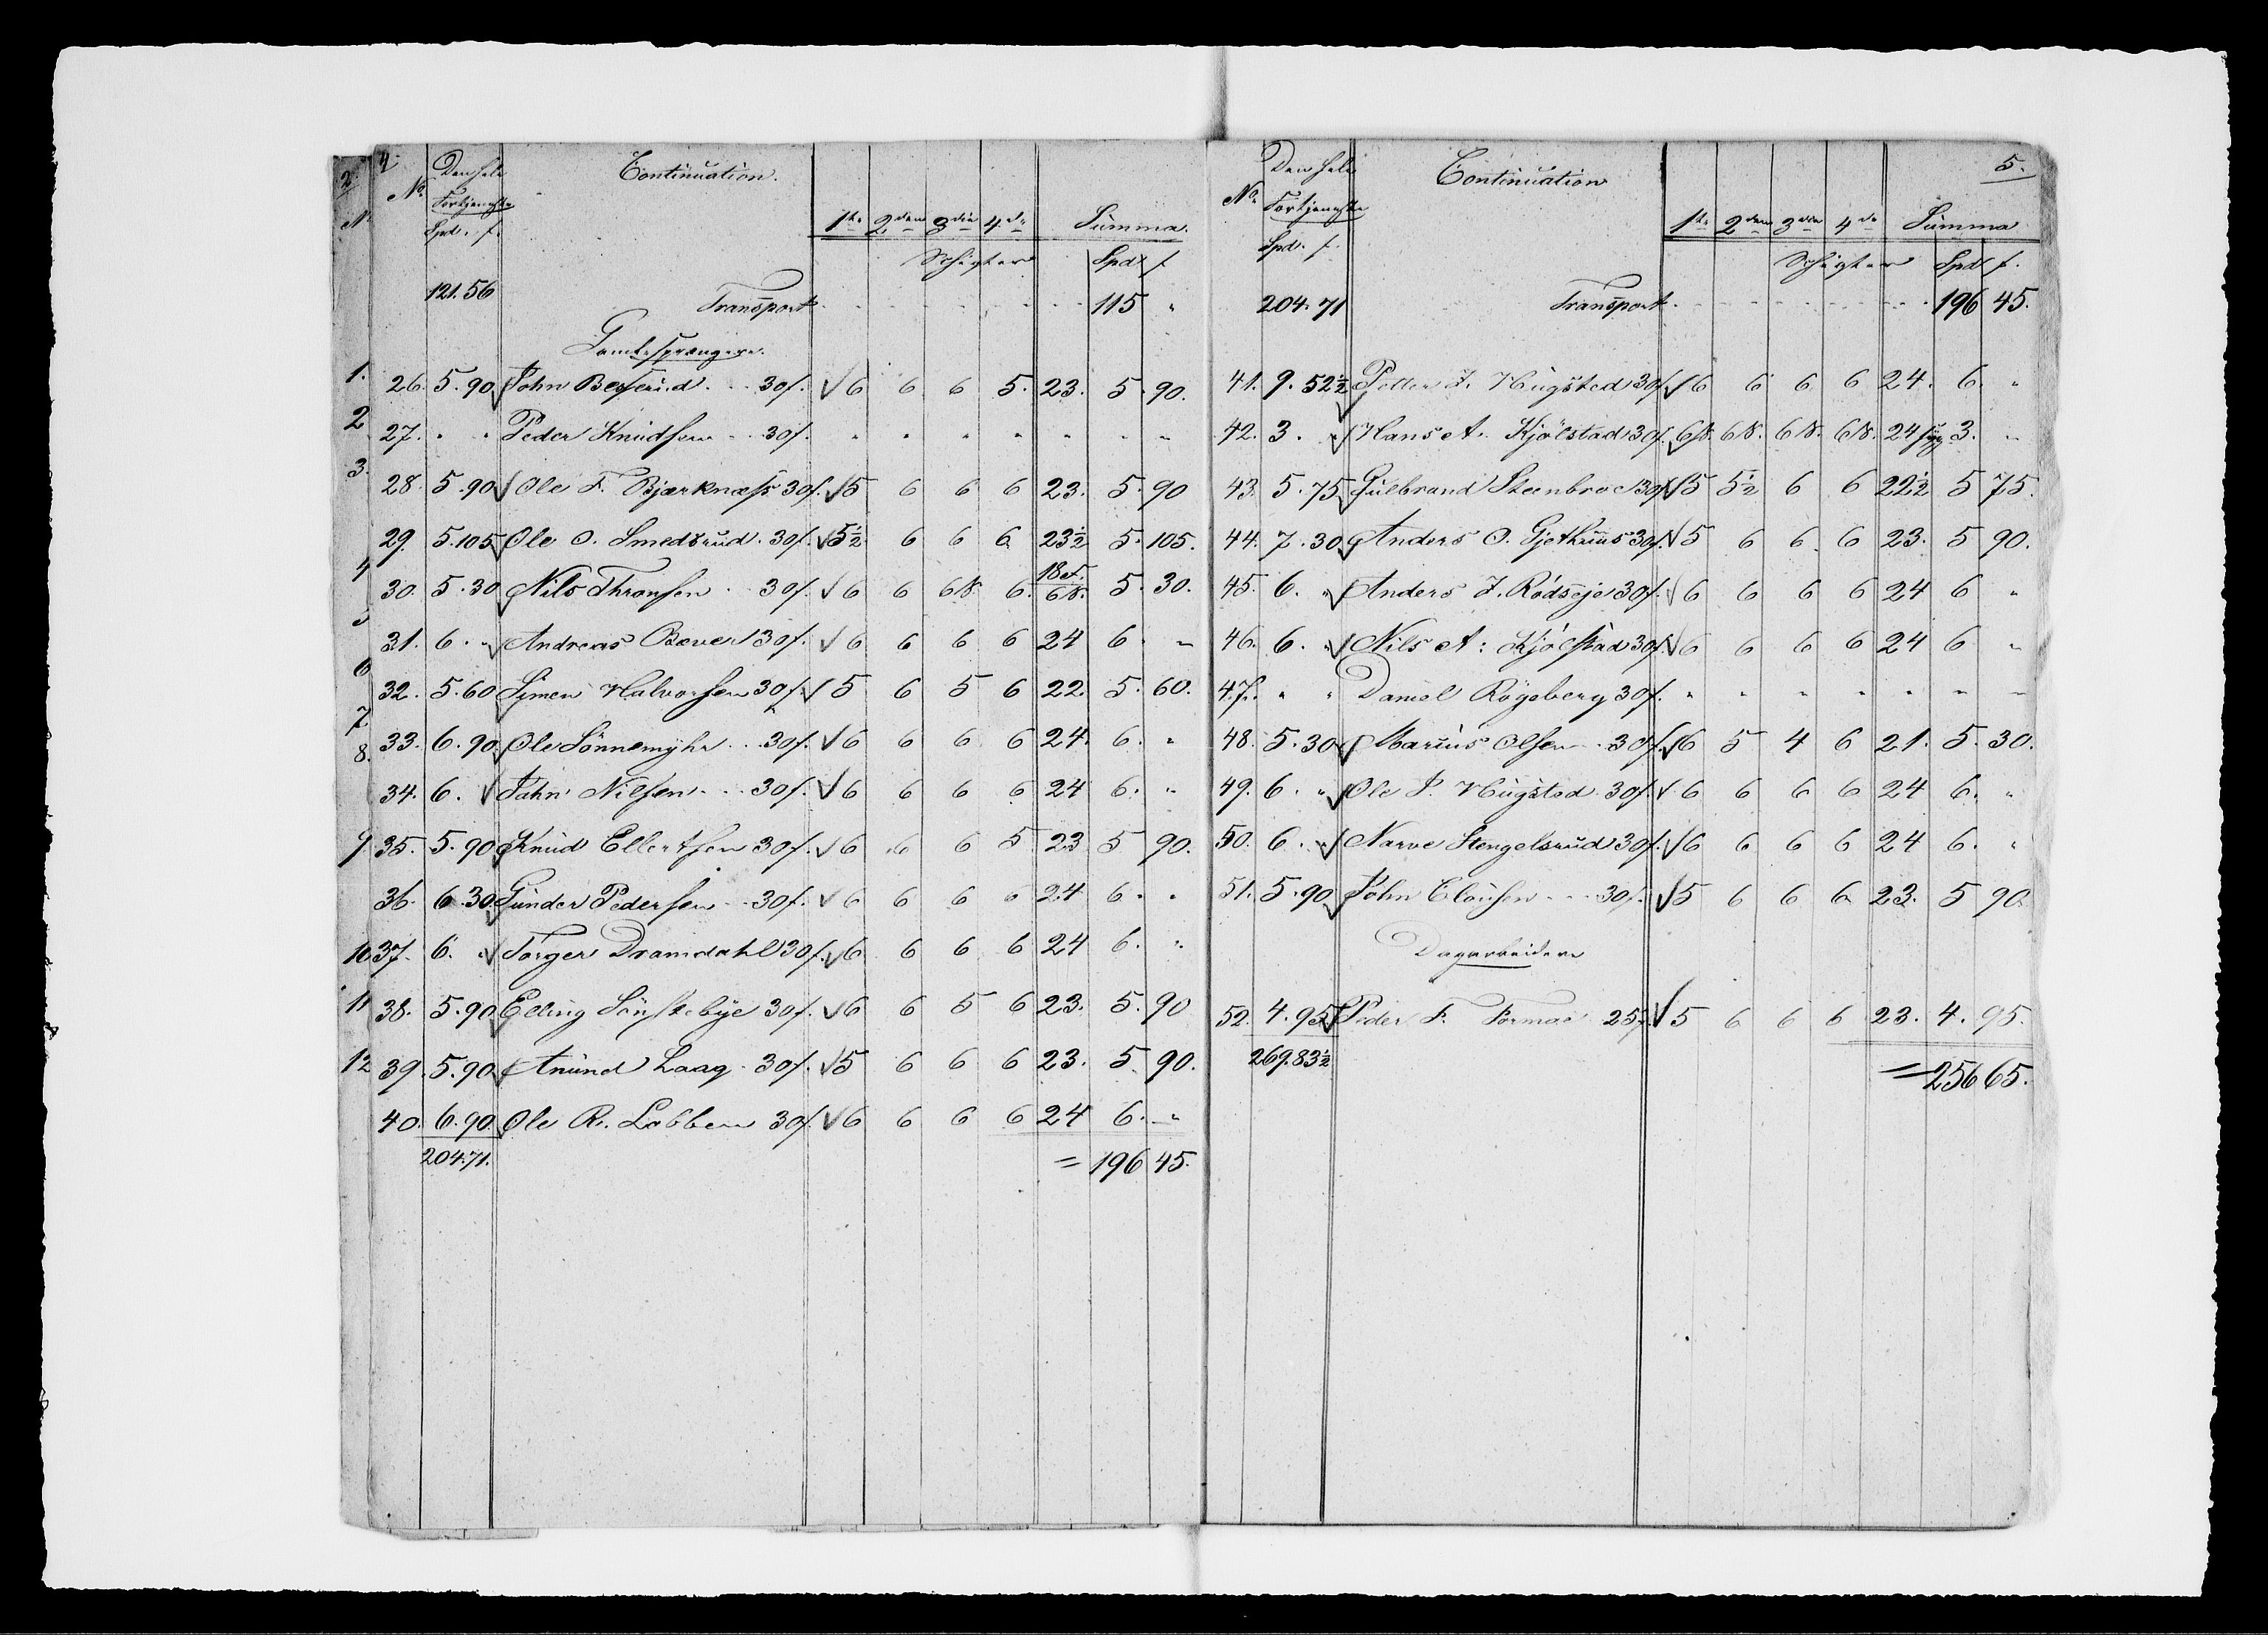 4.
No. Den hele Fortjeneste Spd. f. Continuation. 1ste 2den 3die 4de Summa.
Schigter Spd. f
121.56 Transport 115 "
26. 5.90 John Besserud 30f. 6 6 6 5. 23. 5. 90.
27. " " Peder Knudsen 30f. " " " " " " "
28. 5.90 Ole F. Bjerknæss 30f. 5 6 6 6 23. 5. 90
29. 5.105 Ole O. Smedsrud. 30f. 5½ 6 6 6 23½ 5. 105.
30. 5.30 Nils Thronsen 30f. 6 6 6 6. 18 5. 30.
31. 6. " Andreas Bæver 30f. 6 6 6 6 24 6. "
32. 5.60 Simen Halvorsen 30f. 5 6 5 6 22. 5. 60.
33. 6.90 Ole Sönnemyhr 30f. 6 6 6 6 24. 6. "
34. 6. John Nilsen 30f. 6 6 6 6 24 6. "
35. 5.90 Knud Ellertsen 30f. 6 6 6 5 23 5 90.
36. 6.30 Gunder Pedersen 30f. 6 6 6 6 24 6. "
37. 6. " Torger Dramdahl 30f. 6 6 6 6 24 6. "
38. 5.90 Elling Sönstebye 30f. 6 6 5 6 23. 5. 90
39. 5.90 Anund Laag 30f. 5 6 6 6 23. 5 90.
40. 6.90 Ole R. Lobben 30f. 6 6 6 6 24 6. "
204.71. = 196 45.
5.
No. Den hele Fortjeneste Spd. f. Continuation 1ste 2den 3die 4de Summa
Schigter Spd f.
204.71 Transport 196 45.
41. 9.52½ Petter J. Hugsted 30f 6 6 6 6 24. 6. "
42. 3. " Hans A. Kjölstad 30f. 6 6 6 6 24 syg 3. "
43. 5.75 Gulbrand Steenbroe 30f 5 5½ 6 6 22½ 5 75.
44. 7.30 Anders O. Gjethuus 30f. 5 6 6 6 23. 5 90.
45. 6. " Anders J. Rödseje 30f. 6 6 6 6 24 6 "
46. 6. " Nils A: Kjölstad 30f. 6 6 6 6 24 6 "
47. " " Daniel Rögeberg 30f. " " " " " " "
48. 5.30 Marius Olsen 30f. 6 5 4 6 21. 5. 30.
49. 6. " Ole P. Hugsted 30f. 6 6 6 6 24 6. "
50. 6. " Narve Stengelsrud 30f. 6 6 6 6 24 6. "
51. 5.90 John Clausen 30f. 5 6 6 6 23. 5 90.
Dagarbeidere
52. 4.95 Peder F. Formoe 25f. 5 6 6 6 23. 4. 95.
269.83½ = 256 65.